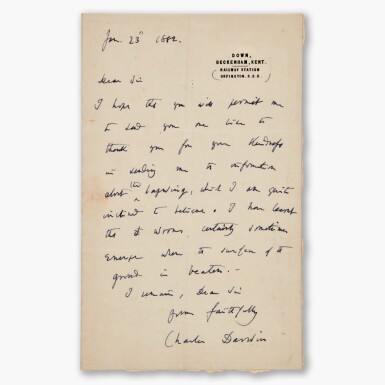 Jan. 23ᵈ 1882.
DOWN,
BECKENHAM, KENT.
RAILWAY STATION
ORPINGTON. S.E.R.
Dear Sir
I hope that you will permit me
to send you one line to
thank you for your kindness
in sending me the information
about the lapwings, which I am quite
inclined to believe. I have learnt
that worms certainly sometimes
emerge when the surface of the
ground is beaten.—
I remain, Dear Sir
yours faithfully
Charles Darwin